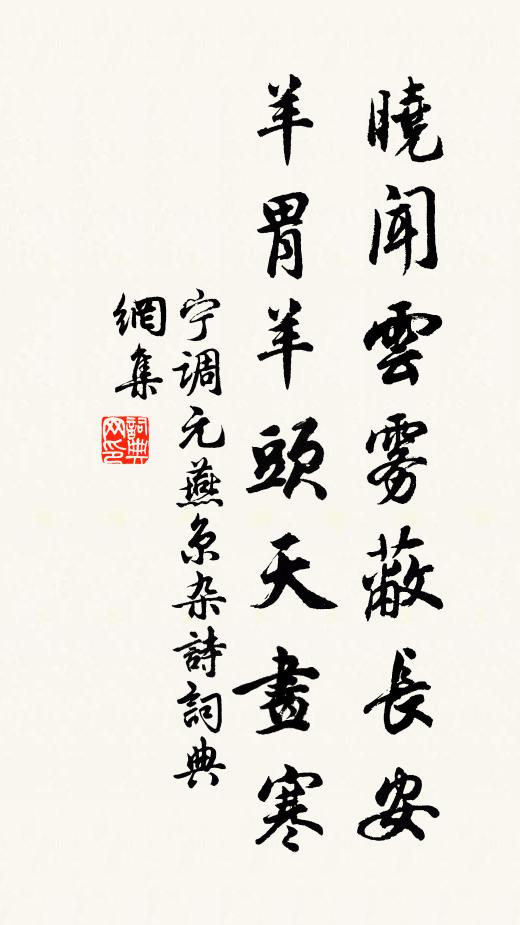 曉聞雲霧蔽長安
羊胃羊頭天晝寒
宁调元燕京杂詩詞典
網集
詞典網印